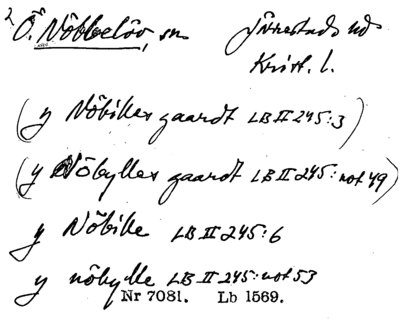 2 Ö. Nöbbelöv, sn Järrestads hd
Krist. l.
(y Nöbilles gaardt LB II 245:3)
(y Nöbylles gaardt LB II 245: not 49)
y Nöbille LB II 245:6
y nöbylle LB II 245: not 53
Nr 7081. Lb 1569.